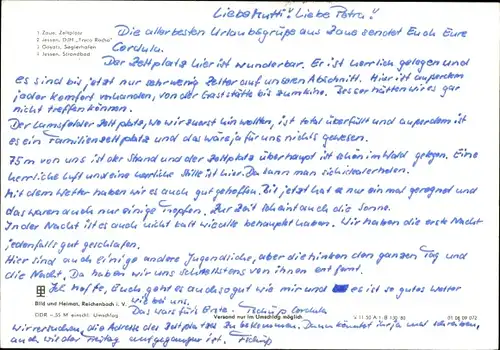 Liebe Mutti! Liebe Petra!
1 Zaue, Zeltplatz
2 Jessen, DJH „Fuco Rocha"
3 Goyatz, Seglerhafen
4 Jessen, Strandbad
Die allerbesten Urlaubsgrüße aus Zaue sendet Euch Eure
Cordula.
Der Zeltplatz hier ist wunderbar. Er ist herrlich gelegen und
es sind bis jetzt nur sehr wenig Zelter auf unseren Abschnitt. Hier ist außerdem
jeder Komfort vorhanden, von der Gaststätte bis zum Kino. Besser hätten wir es gar
nicht treffen können.
Der Zeltplatz, wo wir zuerst hin wollten, ist total überfüllt und außerdem ist
es ein Familienzeltplatz und das wäre ja für uns nichts gewesen.
75 m von uns ist der Strand und der Zeltplatz überhaupt ist schön im Wald gelegen. Eine
herrliche Luft und eine herrliche Stille ist hier. Da kann man sich echt erholen.
Mit dem Wetter haben wir es auch gut getroffen. Bis jetzt hat es nur einmal geregnet und
das waren auch nur einige Tropfen. Zur Zeit scheint auch die Sonne.
In der Nacht ist es auch nicht kalt wie alle behauptet haben. Wir haben die erste Nacht
jedenfalls gut geschlafen.
Hier sind auch einige andere Jugendliche, aber die trinken den ganzen Tag und
die Nacht. Da haben wir uns schnellstens von ihnen entfernt.
Ich hoffe, Euch geht es auch so gut wie mir und es ist so gutes Wetter
wie bei uns.
Bild und Heimat, Reichenbach i. V.
Das war's fürs Erste. Tschüß Cordula
DDR –,55 M einschl. Umschlag
Versand nur im Umschlag möglich
V 11 50 A 1 B 130/85
01 08 09 072
Wir versuchen, die Adresse des Zeltplatzes zu bekommen. Dann könnt ihr ja mal schreiben,
auch wie der Freitag ausgegangen ist. Tschüß